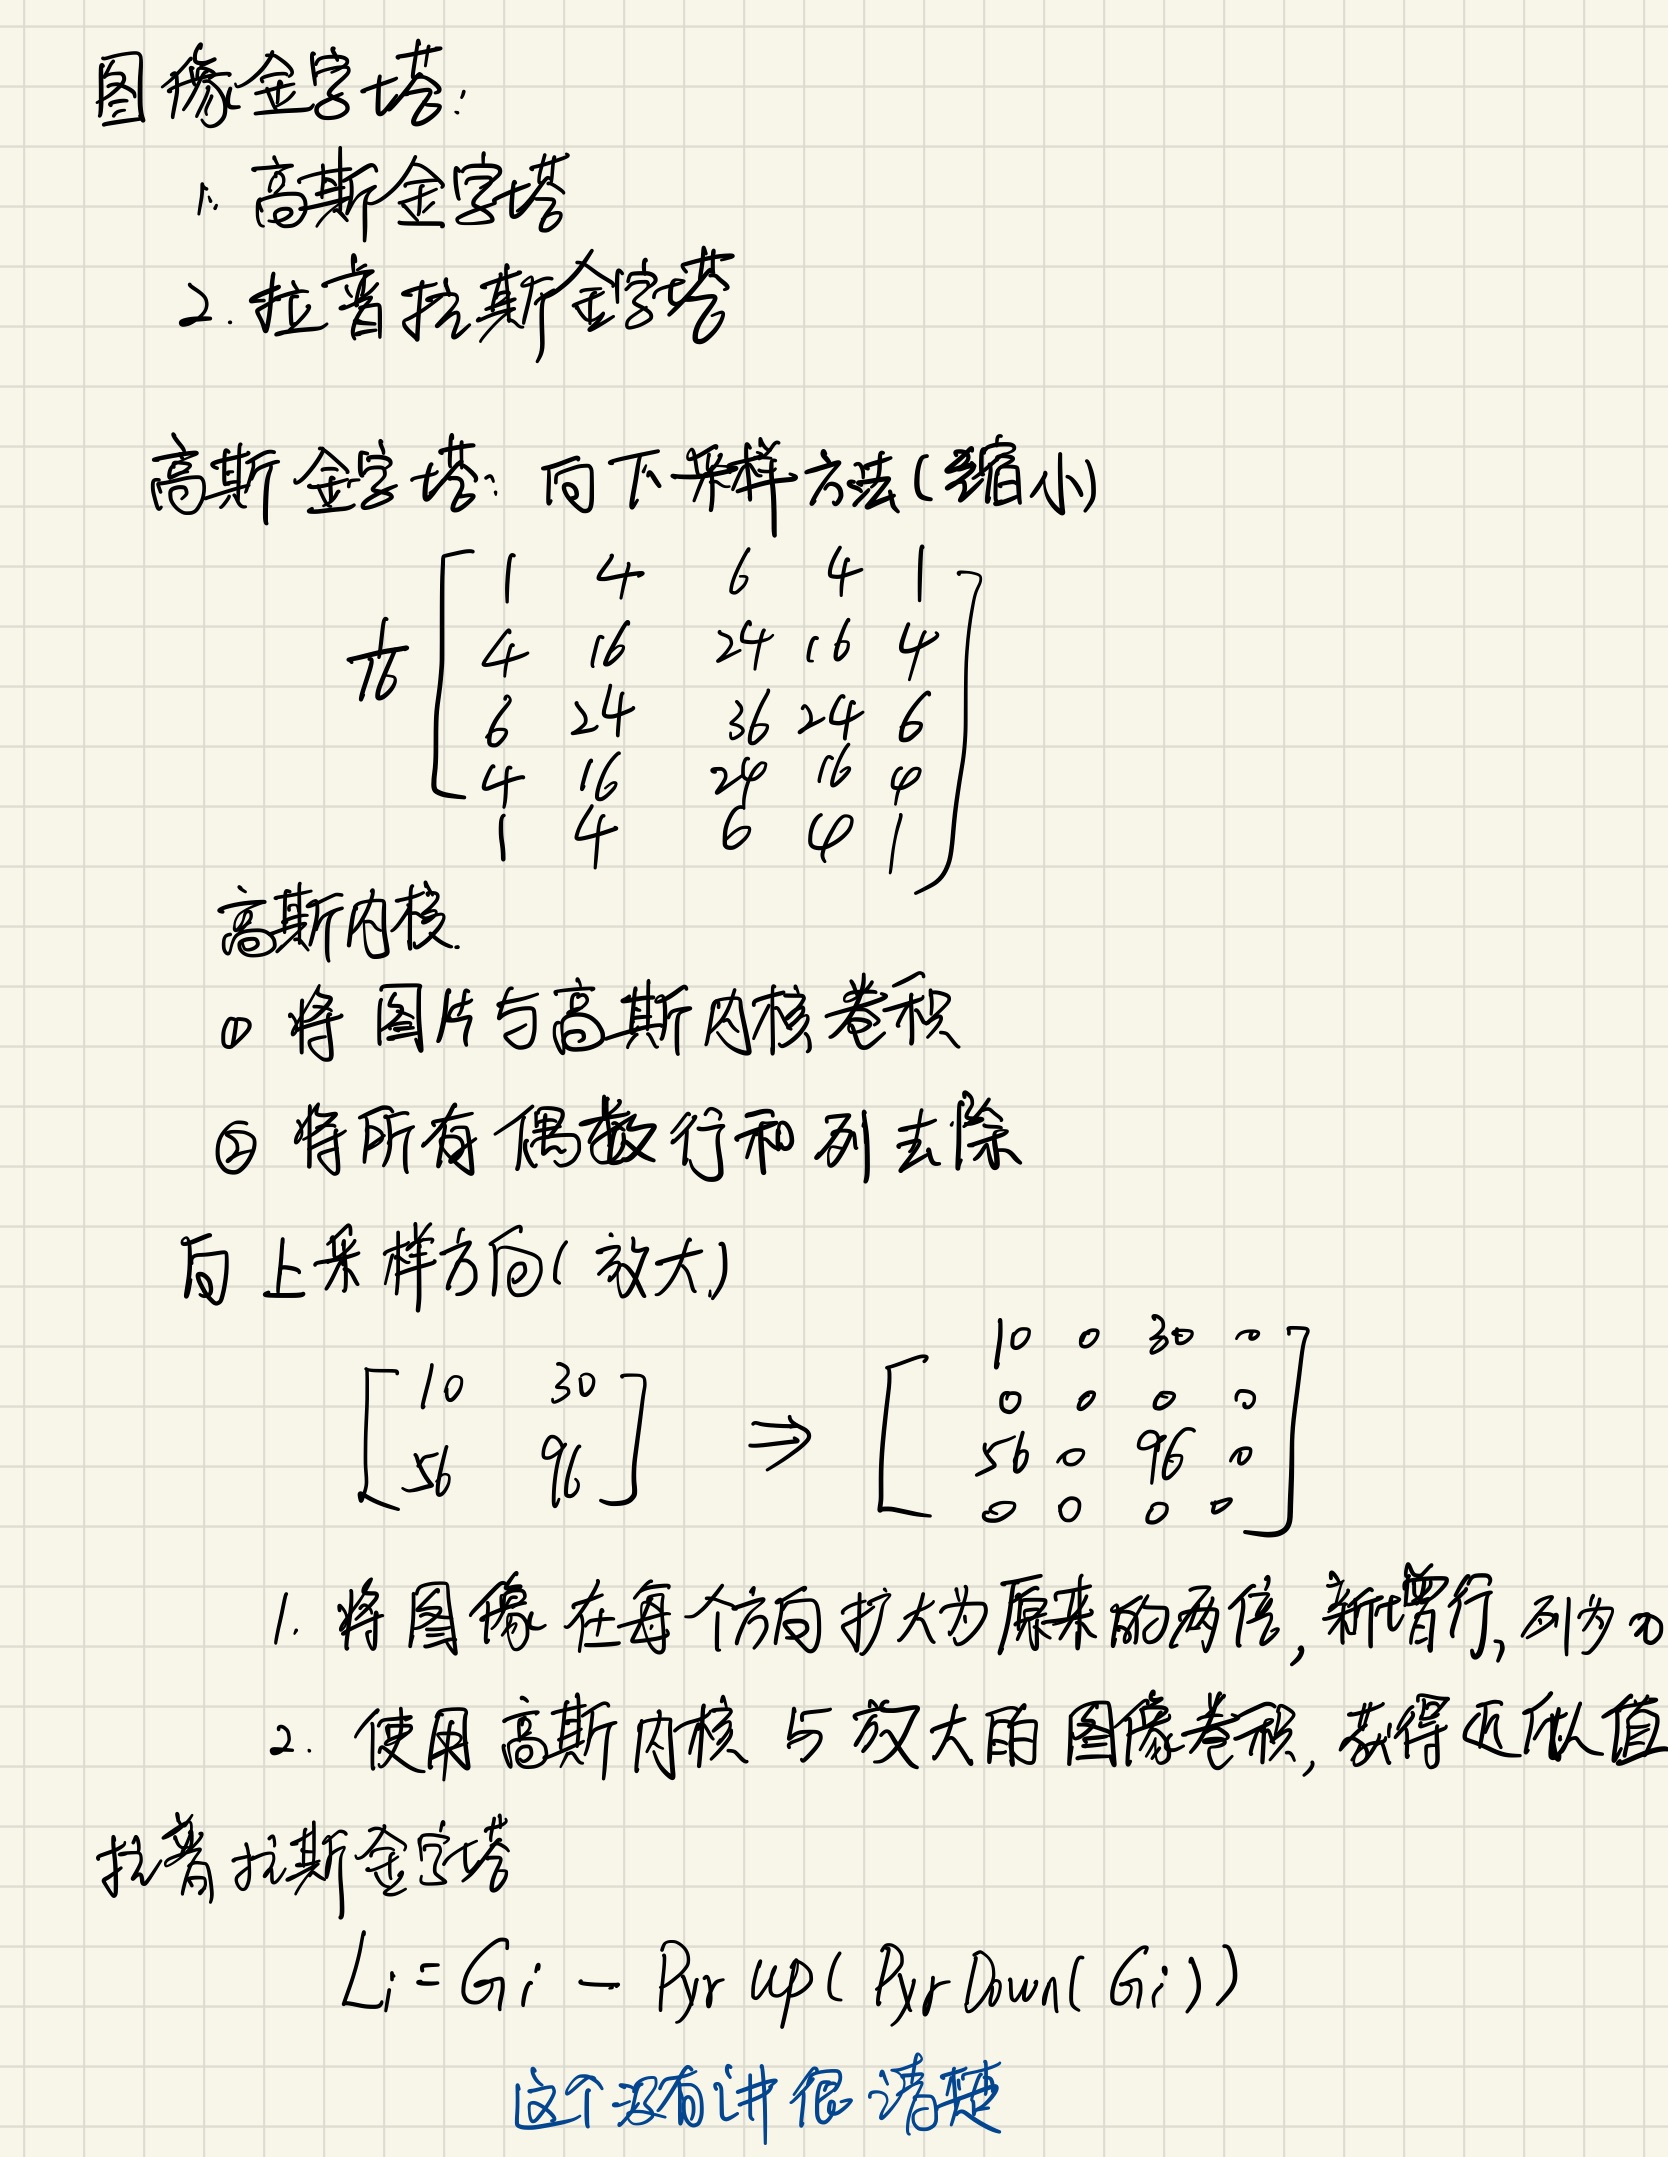 图像金字塔:
1. 高斯金字塔
2. 拉普拉斯金字塔
高斯金字塔: 向下采样方法(缩小)
1 4 6 4 1
4 16 24 16 4
1/16 6 24 36 24 6
4 16 24 16 4
1 4 6 4 1
高斯内核.
① 将图片与高斯内核卷积
② 将所有偶数行和列去除
向上采样方向(放大)
[10 30 56 96] ⇒ [10 0 30 0
0 0 0 0
56 0 96 0
0 0 0 0]
1. 将图像在每个方向扩大为原来的两倍,新增行,列为0
2. 使用高斯内核与放大的图像卷积,获得近似值
拉普拉斯金字塔
Li = Gi - Pyr Up( Pyr Down( Gi ) )
这个没有讲很清楚